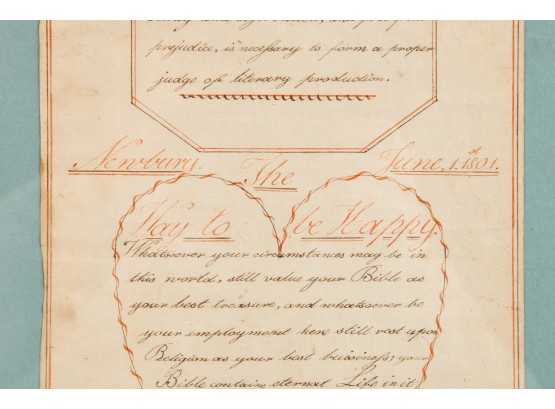 prejudice, is necessary to form a proper
judge of literary production.
Newbury. The June, 1.st 1801.
Way to be Happy.
Whatsoever your circumstances may be in
this world, still value your Bible as
your best treasure, and whatsoever be
your employment here still rest upon
Religion as your best buissiness; your
Bible contains eternal Life in it